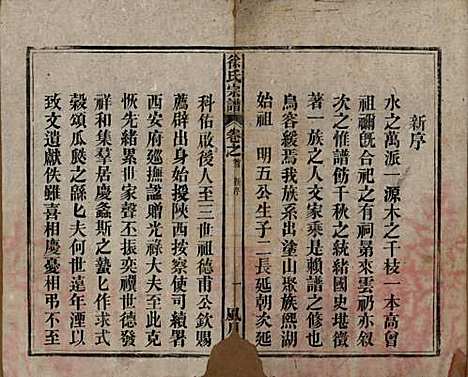 新序
水之萬派一源木之千枝一本高曾
祖禰既合祀之有祠易來雲礽亦叙
次之惟譜飭千秋之統緒國史堪徵
著一族之人文家乘是賴譜之修也
烏容緩焉我族系出塗山聚族熙湖
始祖 明五公生子二長延朝次延
徐氏宗譜 卷之首 新序 一
科佑啟後人至三世祖德甫公欽賜
薦辟出身始授陝西按察使司續署
西安府廵撫誥贈光祿大夫己未
恢先緒累世家聲丕振奕禩世德發
祥和集羣居慶螽斯之蟄蟄求式
穀頌瓜瓞之何世遠年湮以
致文遺獻佚雖喜相慶憂相弔不至